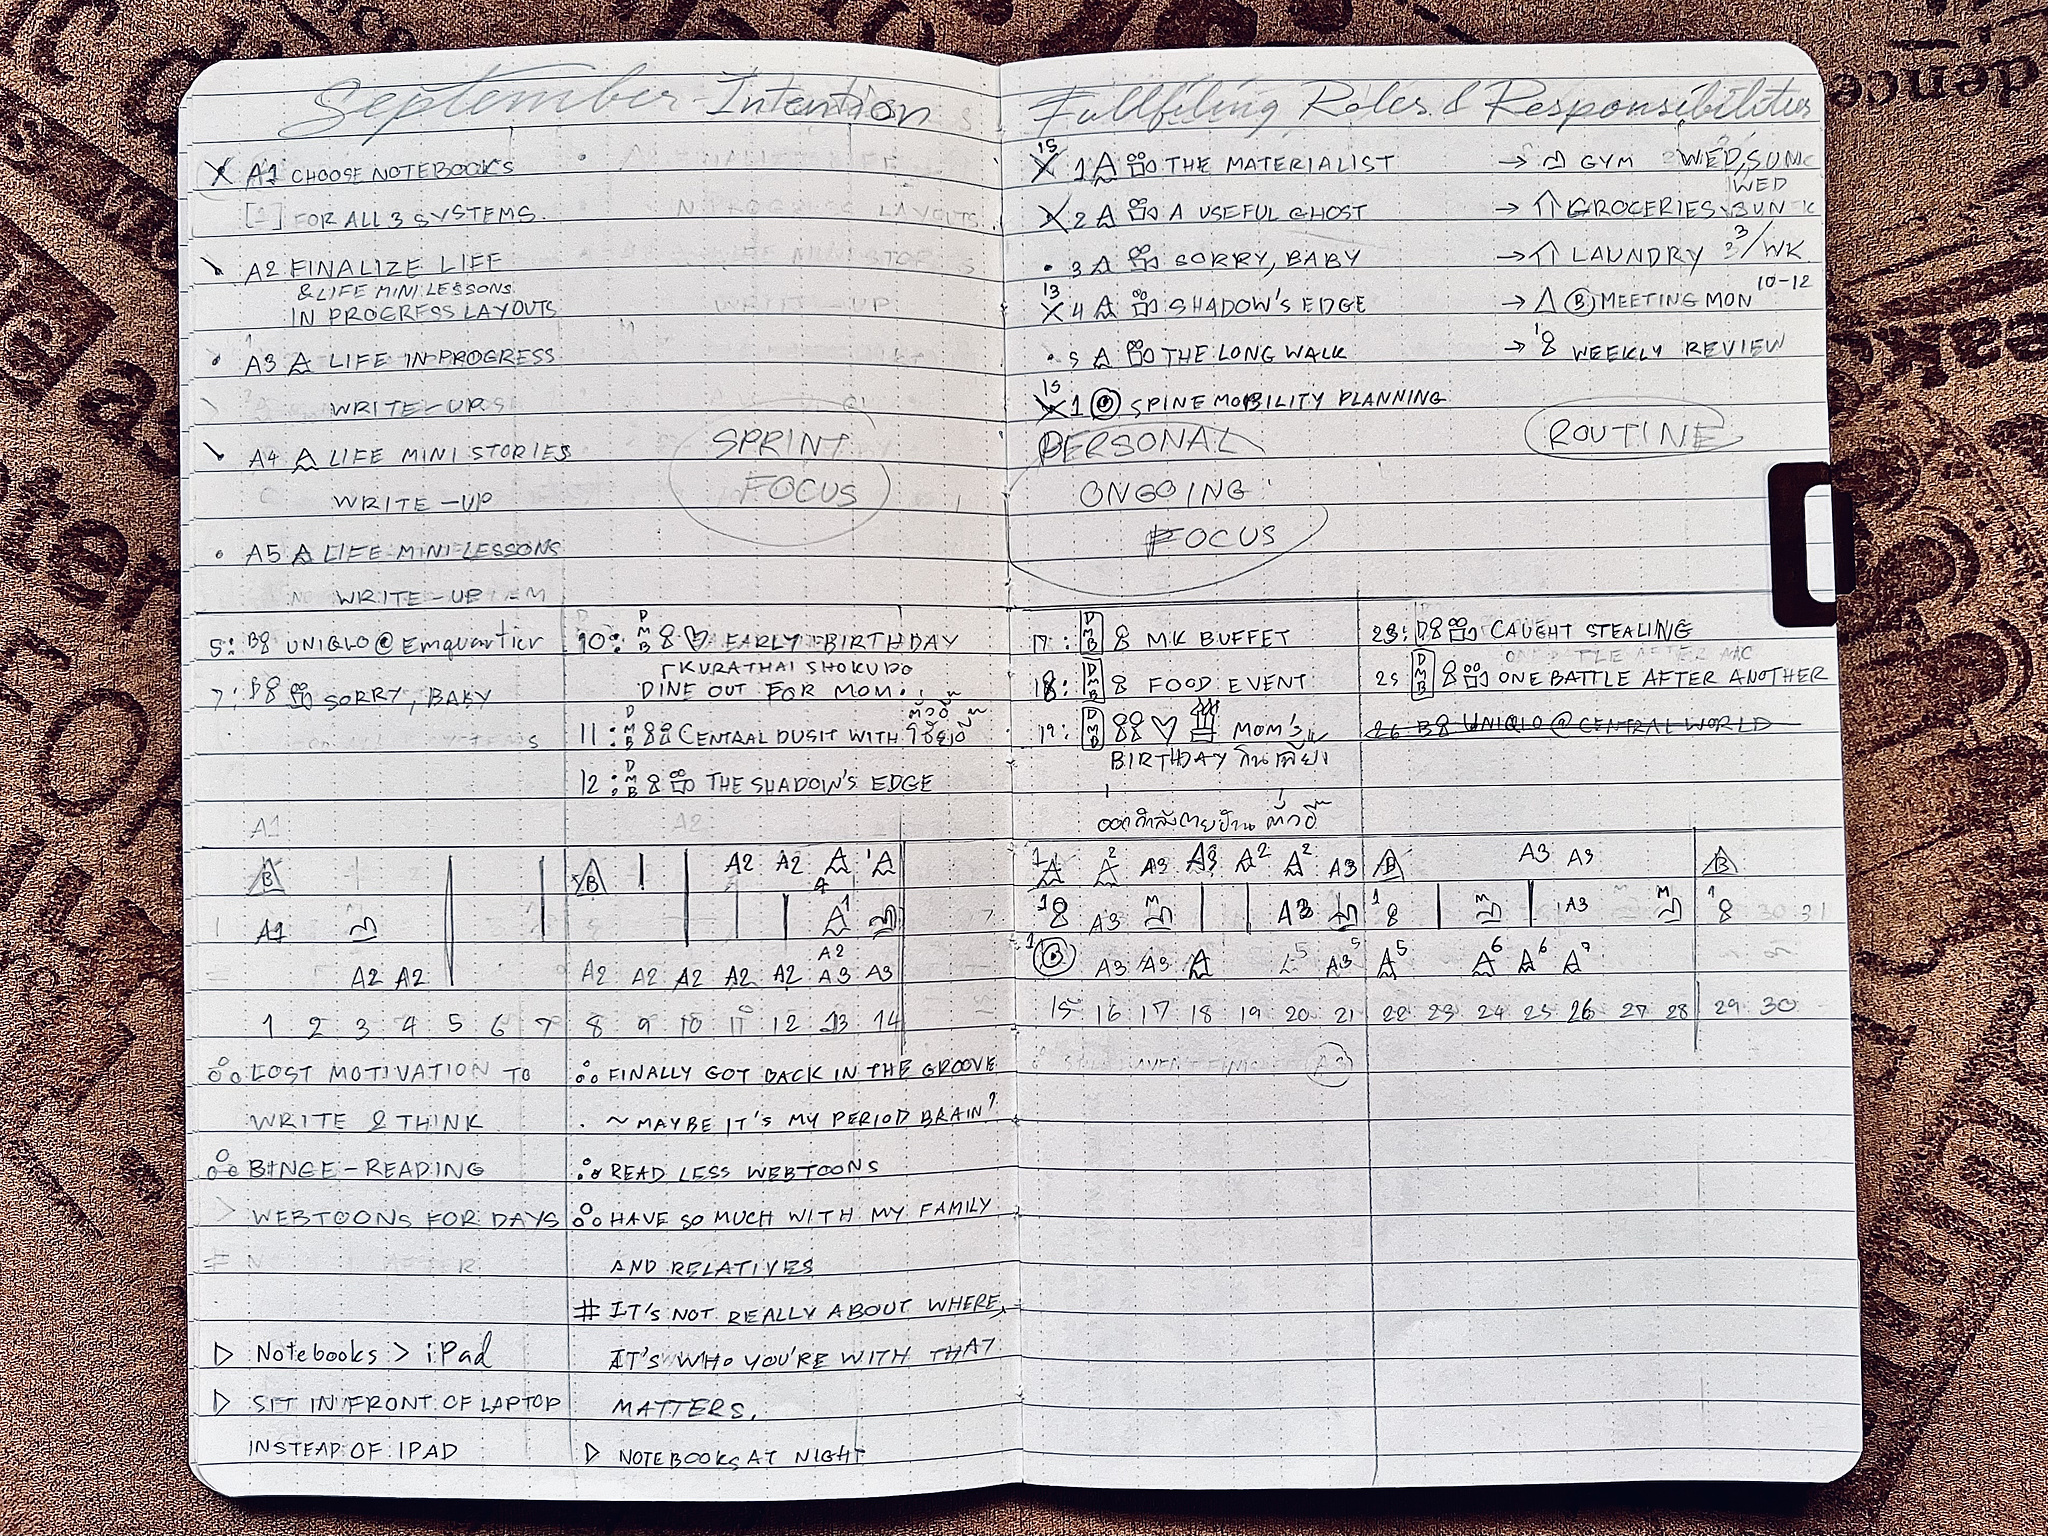 September Intention
X A1 CHOOSE NOTEBOOKS
FOR ALL 3 SYSTEMS.
A2 FINALIZE LIFE
& LIFE MINI LESSONS
IN PROGRESS LAYOUTS
A3 LIFE IN PROGRESS
WRITE-UPS
A4 LIFE MINI STORIES
WRITE-UP
A5 LIFE MINI LESSONS
WRITE-UP
SPRINT
FOCUS
5: B UNIQLO @ Emquartier
7: SORRY, BABY
10: D M B EARLY BIRTHDAY
KURATHAI SHOKUDO
DINE OUT FOR MOM
11: D M B CENTRAL DUSIT WITH
12: D M B THE SHADOW'S EDGE
B A2 A2
A1
A2 A2 A2 A2 A2 A2 A2 A3 A3
1 2 3 4 5 6 7 8 9 10 11 12 13 14
LOST MOTIVATION TO
WRITE & THINK
BINGE-READING
WEBTOONS FOR DAYS
▷ Notebooks > iPad
▷ SIT IN FRONT OF LAPTOP
INSTEAD OF IPAD
FINALLY GOT BACK IN THE GROOVE
~ MAYBE IT'S MY PERIOD BRAIN?
READ LESS WEBTOONS
HAVE SO MUCH WITH MY FAMILY
AND RELATIVES
# IT'S NOT REALLY ABOUT WHERE,
IT'S WHO YOU'RE WITH THAT
MATTERS.
▷ NOTEBOOKS AT NIGHT
Fullfiling Roles & Responsibilities
15
X 1 THE MATERIALIST
X 2 A USEFUL GHOST
• 3 SORRY, BABY
13
X 4 SHADOW'S EDGE
• 5 THE LONG WALK
15
X 1 SPINE MOBILITY PLANNING
PERSONAL
ONGOING
FOCUS
→ GYM WED, SUN
WED
→ GROCERIES SUN
→ LAUNDRY 3/WK
→ B MEETING MON 10-12
→ WEEKLY REVIEW
ROUTINE
17: D M B MK BUFFET
18: D M B FOOD EVENT
19: MOM'S
BIRTHDAY
23: D CAUGHT STEALING
25 D M B ONE BATTLE AFTER ANOTHER
26 B UNIQLO @ CENTRAL WORLD
A3 A3 A3 A3 B
A3 A3 A3
A3 A3 A3
15 16 17 18 19 20 21 22 23 24 25 26 27 28 29 30
A3